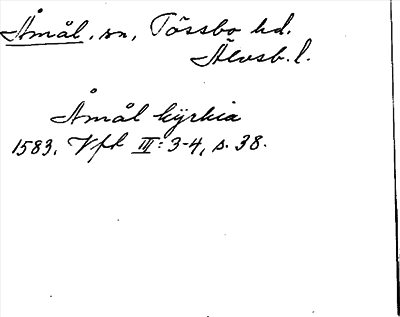 Åmål, sn, Tössbo hd.
Älvsb. l.
Åmål kÿrkia
1583. Vft III: 3-4, s. 38.